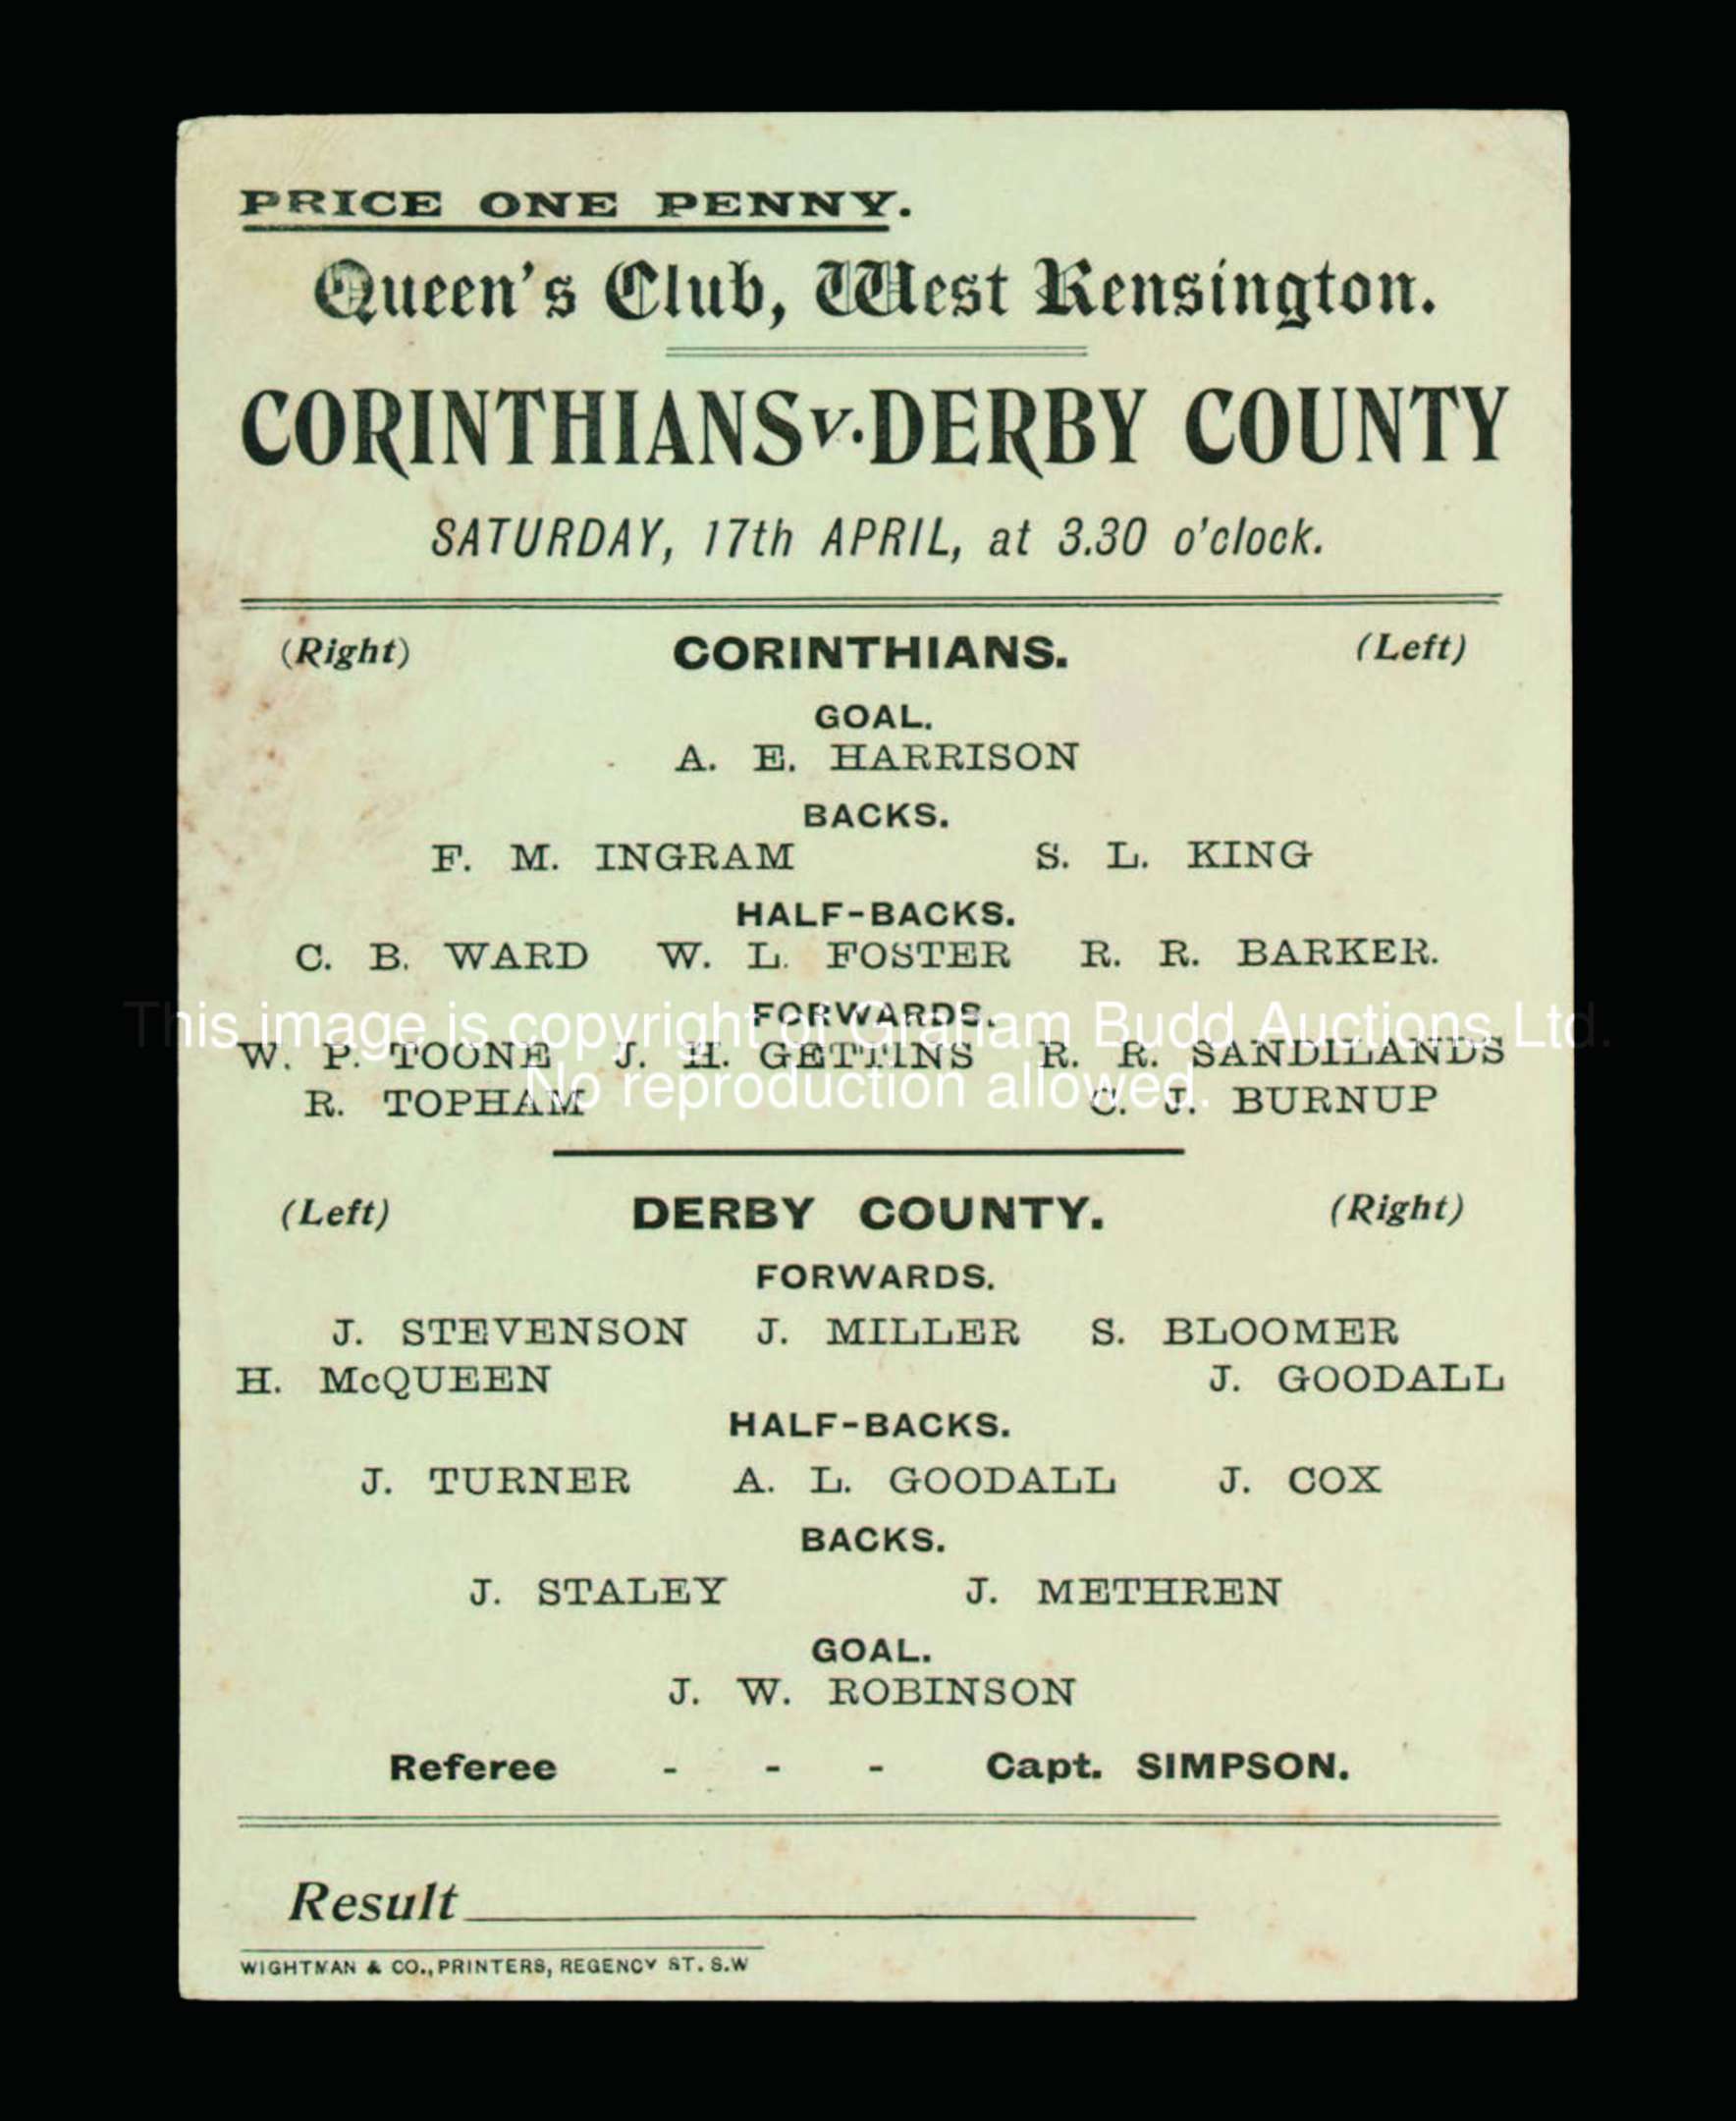 PRICE ONE PENNY.
Queen's Club, West Kensington.
CORINTHIANS v. DERBY COUNTY
SATURDAY, 17th APRIL, at 3.30 o'clock.
(Right) CORINTHIANS. (Left)
GOAL.
A. E. HARRISON
BACKS.
F. M. INGRAM S. L. KING
HALF-BACKS.
C. B. WARD W. L. FOSTER R. R. BARKER.
FORWARDS.
This image is copyright of Graham Budd Auctions Ltd.
W. P. TOONE J. H. GETTINS R. R. SANDILANDS
No reproduction allowed.
R. TOPHAM C. J. BURNUP
(Left) DERBY COUNTY. (Right)
FORWARDS.
J. STEVENSON J. MILLER S. BLOOMER
H. McQUEEN J. GOODALL
HALF-BACKS.
J. TURNER A. L. GOODALL J. COX
BACKS.
J. STALEY J. METHREN
GOAL.
J. W. ROBINSON
Referee - - - Capt. SIMPSON.
Result
WIGHTMAN & CO., PRINTERS, REGENCY ST. S.W